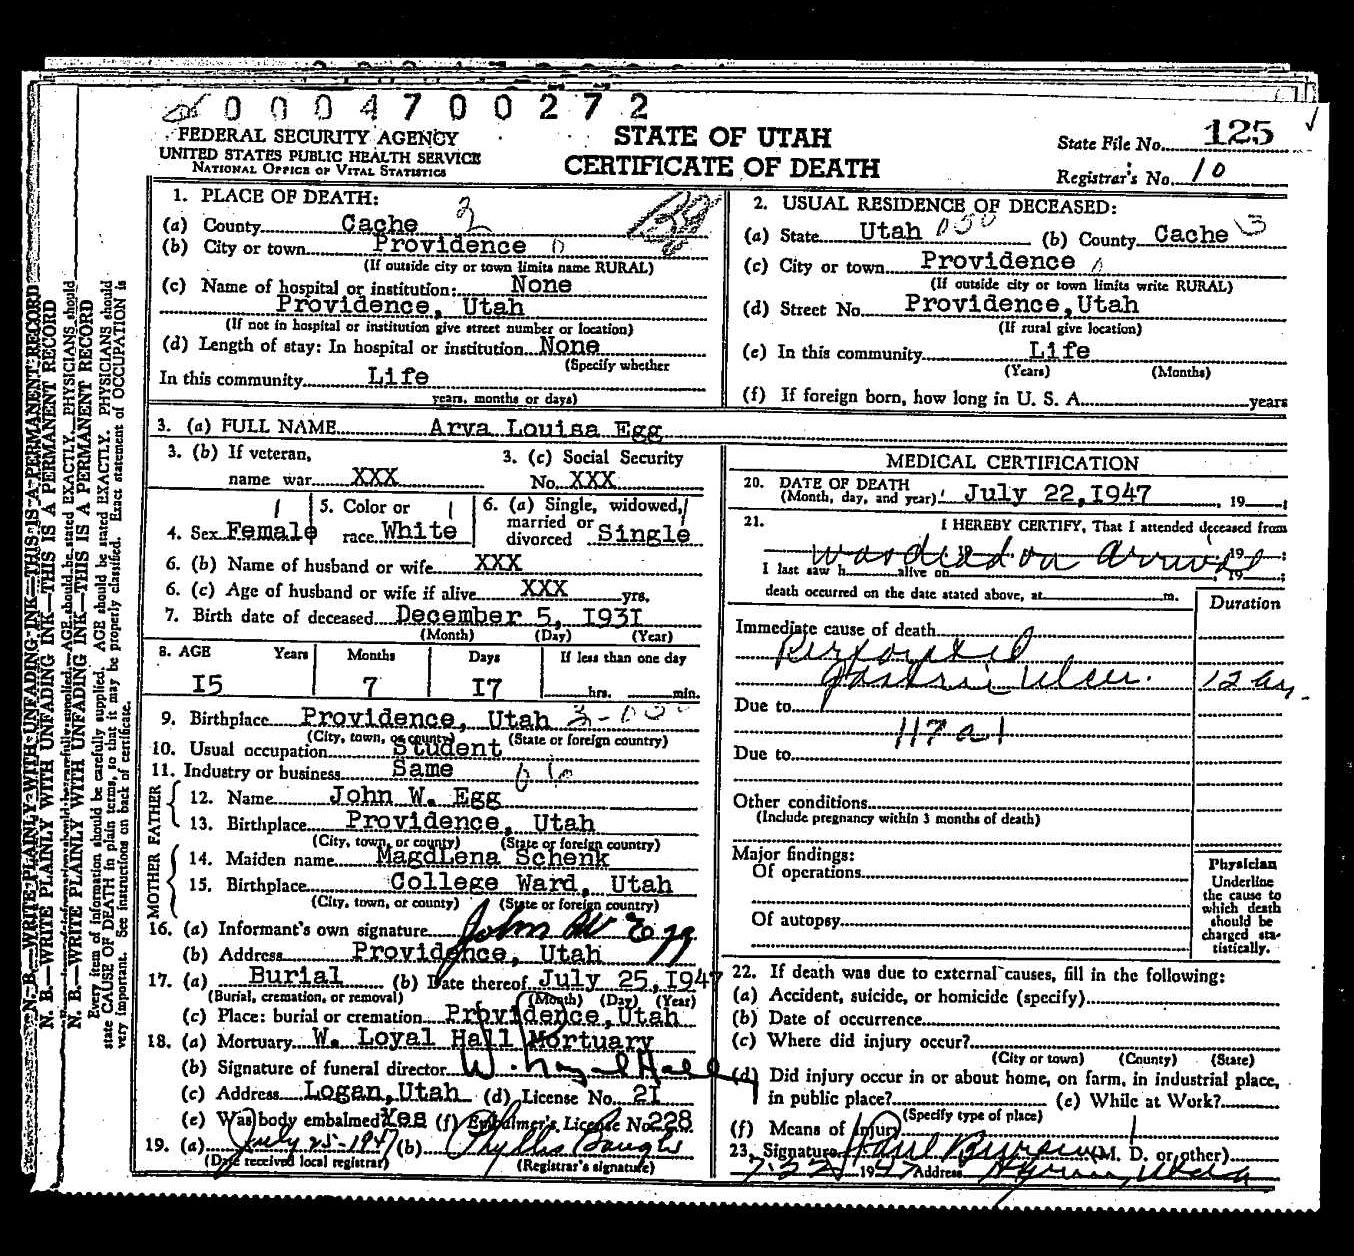 0004700272
FEDERAL SECURITY AGENCY
UNITED STATES PUBLIC HEALTH SERVICE
NATIONAL OFFICE OF VITAL STATISTICS
STATE OF UTAH
CERTIFICATE OF DEATH
State File No. 125
Registrar's No. 10
1. PLACE OF DEATH:
(a) County Cache
(b) City or town Providence
(If outside city or town limits name RURAL)
(c) Name of hospital or institution: None
Providence, Utah
(If not in hospital or institution give street number or location)
(d) Length of stay: In hospital or institution None
(Specify whether
In this community Life
years, months or days)
2. USUAL RESIDENCE OF DECEASED:
(a) State Utah 050 (b) County Cache 3
(c) City or town Providence
(If outside city or town limits write RURAL)
(d) Street No. Providence, Utah
(If rural give location)
(e) In this community Life
(Years) (Months)
(f) If foreign born, how long in U. S. A. years
3. (a) FULL NAME Arva Louisa Egg
3. (b) If veteran,
name war XXX
3. (c) Social Security
No. XXX
4. Sex Female
5. Color or
race White
6. (a) Single, widowed,
married or
divorced Single
6. (b) Name of husband or wife XXX
6. (c) Age of husband or wife if alive XXX yrs.
7. Birth date of deceased December 5, I93I
(Month) (Day) (Year)
8. AGE Years Months Days If less than one day
I5 7 I7 hrs. min.
9. Birthplace Providence, Utah
(City, town, or county) (State or foreign country)
10. Usual occupation Student
11. Industry or business Same
FATHER
12. Name John W. Egg
13. Birthplace Providence, Utah
(City, town, or county) (State or foreign country)
MOTHER
14. Maiden name MagdLena Schenk
15. Birthplace College Ward, Utah
(City, town, or county) (State or foreign country)
16. (a) Informant's own signature John W Egg
(b) Address Providence, Utah
17. (a) Burial (b) Date thereof July 25, I947
(Burial, cremation, or removal) (Month) (Day) (Year)
(c) Place: burial or cremation Providence, Utah
18. (a) Mortuary W. Loyal Hall Mortuary
(b) Signature of funeral director W. Loyal Hall
(c) Address Logan, Utah (d) License No. 2I
(e) Was body embalmed? Yes (f) Embalmer's License No. 228
19. (a) July 25-1947 (b) Phyllis Baugh
(Date received local registrar) (Registrar's signature)
MEDICAL CERTIFICATION
20. DATE OF DEATH
(Month, day, and year) July 22, I947, 19 ;
21. I HEREBY CERTIFY, That I attended deceased from
was dead on arrival 19 ;
I last saw h alive on , 19 ;
death occurred on the date stated above, at m.
Duration
Immediate cause of death
Perforated
Ulcer.
Due to
117 a 1
Due to
Other conditions
(Include pregnancy within 3 months of death)
Major findings:
Of operations
Of autopsy
Physician
Underline
the cause to
which death
should be
charged sta-
tistically.
22. If death was due to external causes, fill in the following:
(a) Accident, suicide, or homicide (specify)
(b) Date of occurrence
(c) Where did injury occur?
(City or town) (County) (State)
(d) Did injury occur in or about home, on farm, in industrial place,
in public place? (e) While at Work?
(Specify type of place)
(f) Means of Injury
23. Signature (M. D. or other)
7-22 1947 Address Hyrum, Utah
N. B.—WRITE PLAINLY WITH UNFADING INK—THIS IS A PERMANENT RECORD
N. B.—WRITE PLAINLY WITH UNFADING INK—THIS IS A PERMANENT RECORD
N. B.—WRITE PLAINLY WITH UNFADING INK—THIS IS A PERMANENT RECORD
Every item of information should be carefully supplied. AGE should be stated EXACTLY. PHYSICIANS should
state CAUSE OF DEATH in plain terms, so that it may be properly classified. Exact statement of OCCUPATION is
very important. See instructions on back of certificate.